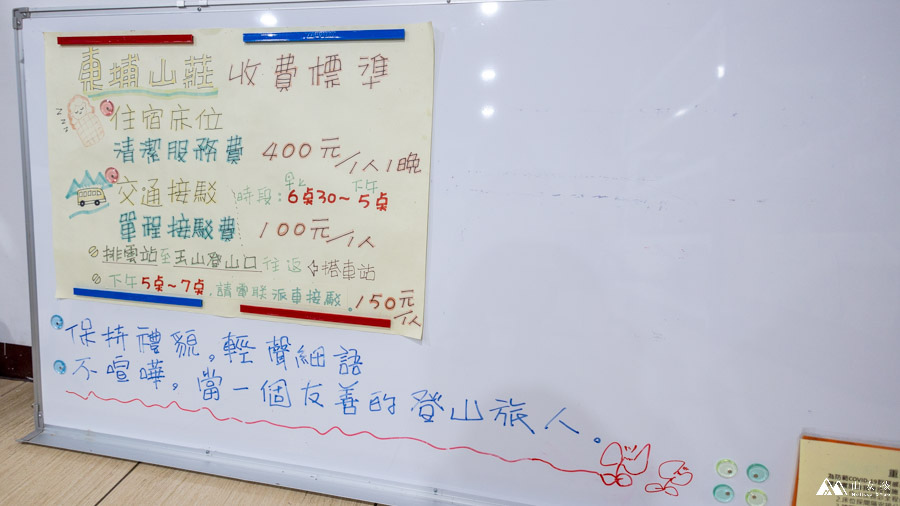 東埔山莊 收費標準
住宿床位
清潔服務費 400元/1人1晚
zzz
交通接駁 時段:早上6桌30~下午5桌
單程接駁費 100元/1人
排雲站至玉山登山口往返⇦搭車站
下午5桌~7桌,請電联派車接駁。150元/人
保持禮貌,輕聲細語
不喧嘩,當一個友善的登山旅人。
重
為防範COVID-19
山友家